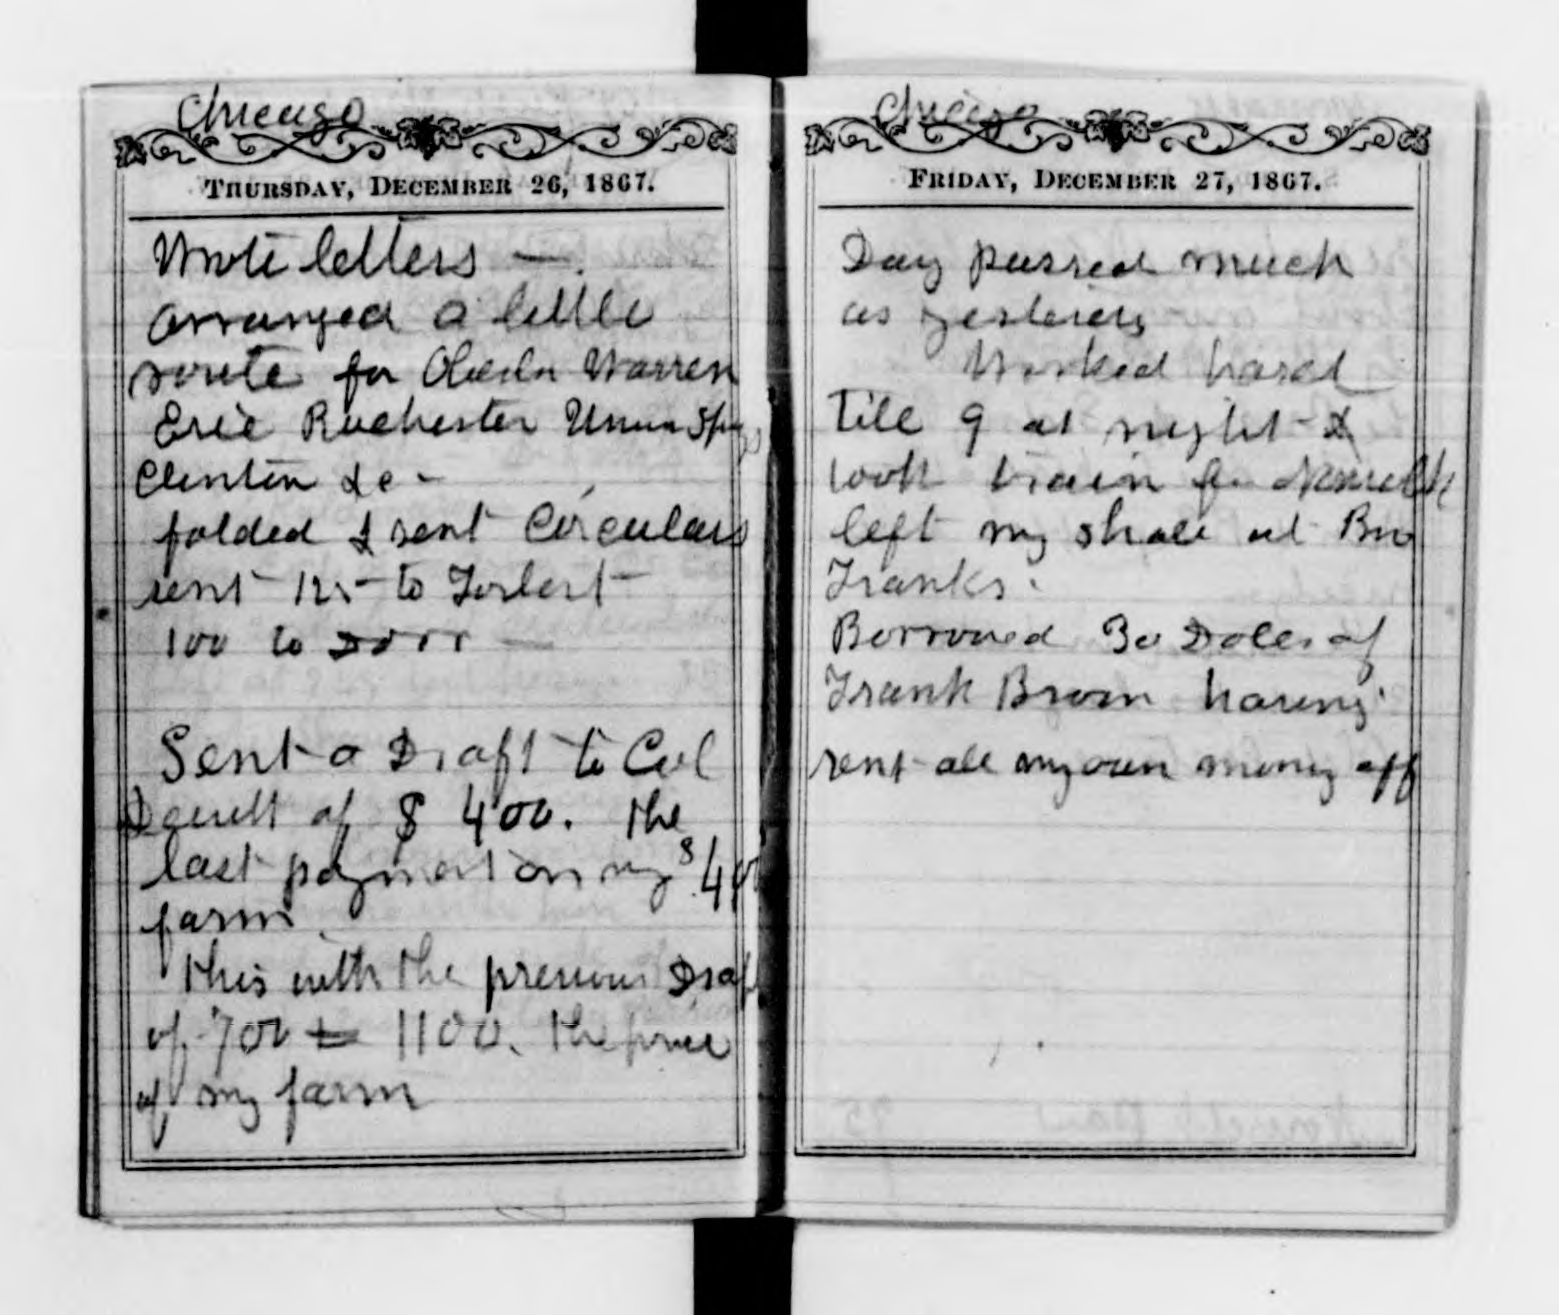 Chicago
THURSDAY, DECEMBER 26, 1867.
Wrote letters —.
arranged a little
route for Oberlin Warren
Erie Rochester Union Spgs
Clinton &c –
folded & sent Circulars
sent 125 to Torbert –
100 to
Sent a Draft to Col
of $400. The
last payment on my $400
farm.
This with the previous Draft
of 700 = 1100. The price
of my farm
Chicago
FRIDAY, DECEMBER 27, 1867.
Day passed much
as yesterday
Worked hard
till 9 at night &
took train for Norwalk
left my shale at Bro
Franks.
Borrowed 30 Dolls of
Frank Brown having
sent all my own money off